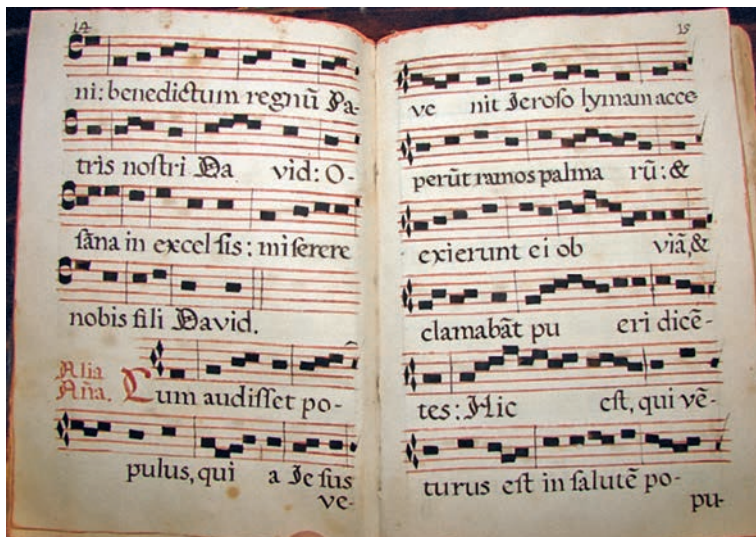 14
ni: benedictum regnū Pa-
tris nostri Da vid: O-
sāna in excel sis: miserere
nobis fili David.
Alia
Aña. Cum audisset po-
pulus, qui a Je sus
ve-
15
ve nit Jeroso lymam acce
perūt ramos palma rū: &
exierunt ei ob viā, &
clamabāt pu eri dicē-
tes: Hic est, qui vē-
turus est in salutē po-
pu-